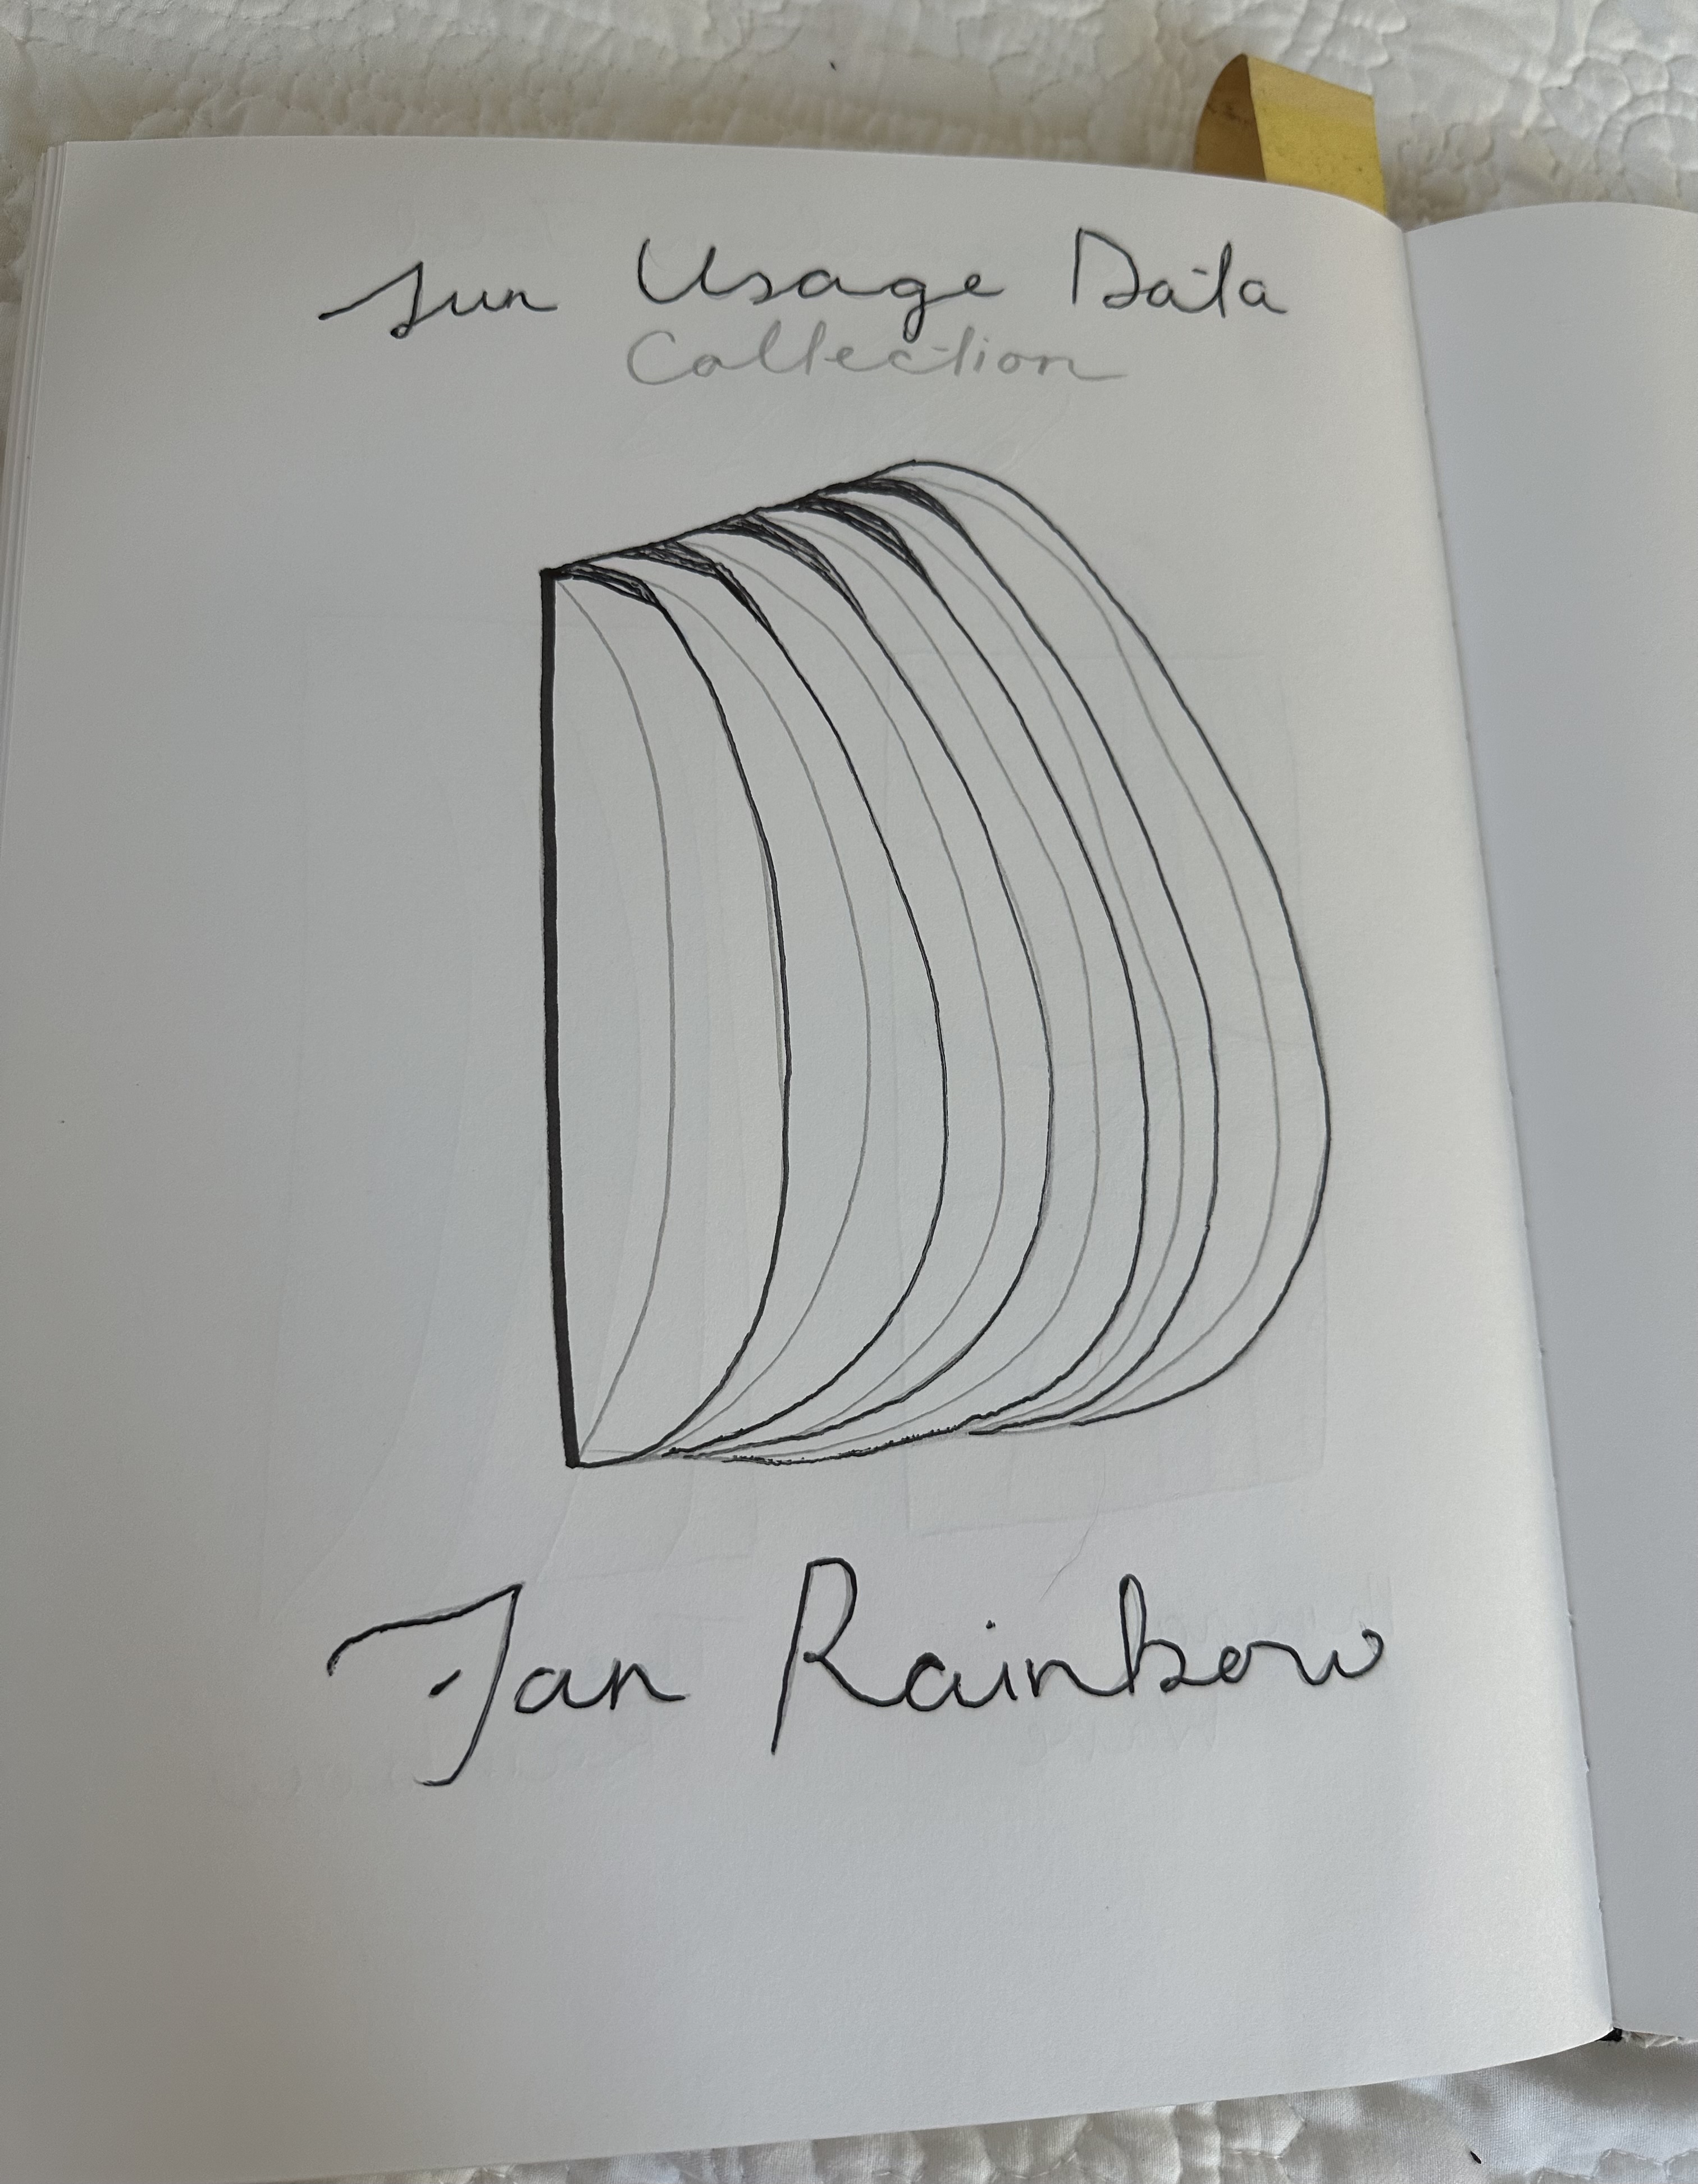 Sun Usage Data
Collection
Jan Rainbow